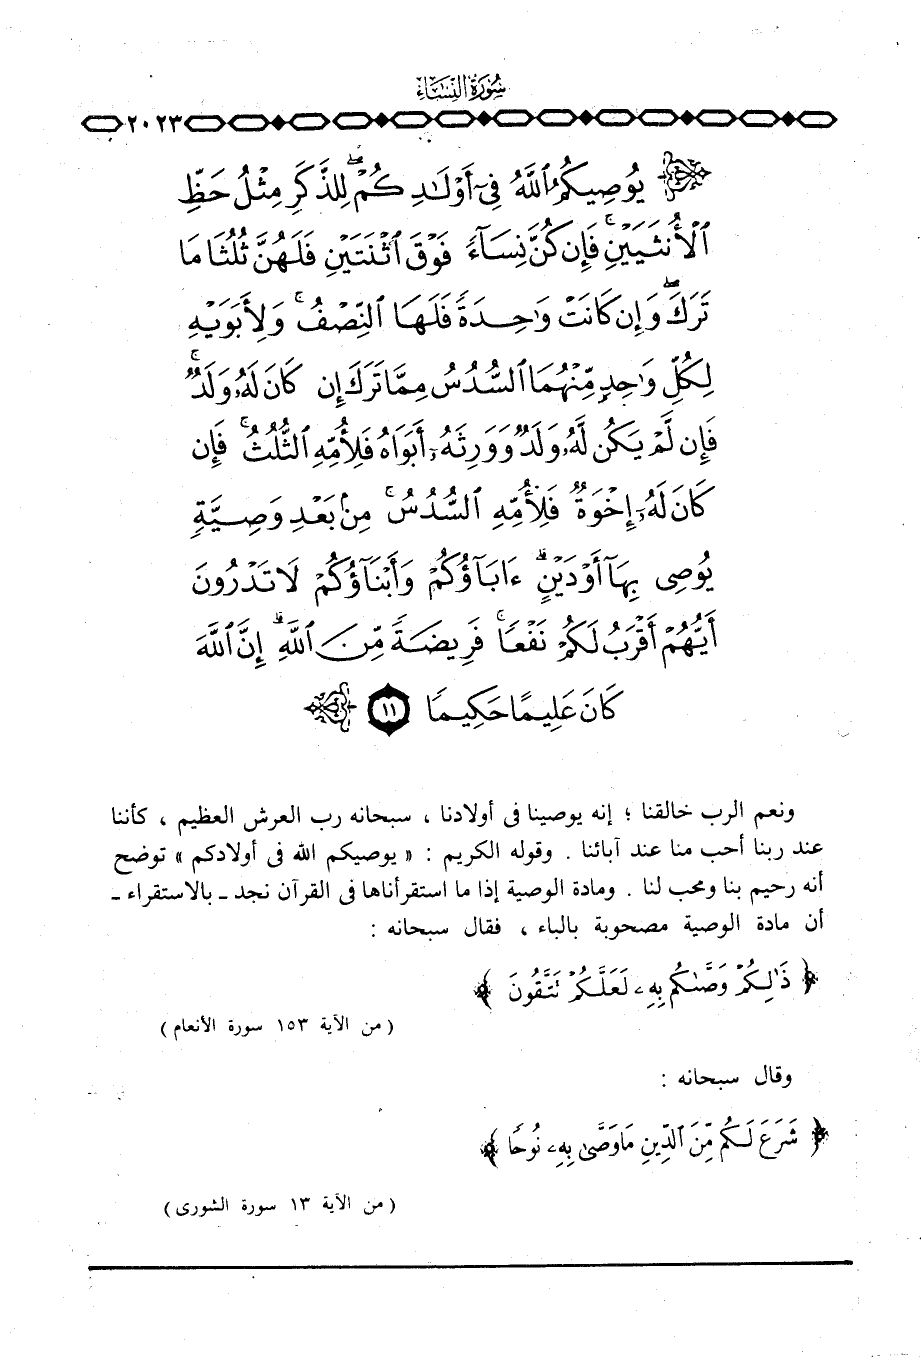 سُورَةُ النِّسَاءِ
٢٠٢٣
يُوصِيكُمُ ٱللَّهُ فِىٓ أَوْلَـٰدِكُمْ ۖ لِلذَّكَرِ مِثْلُ حَظِّ
ٱلْأُنثَيَيْنِ ۚ فَإِن كُنَّ نِسَآءً فَوْقَ ٱثْنَتَيْنِ فَلَهُنَّ ثُلُثَا مَا
تَرَكَ ۖ وَإِن كَانَتْ وَٰحِدَةً فَلَهَا ٱلنِّصْفُ ۚ وَلِأَبَوَيْهِ
لِكُلِّ وَٰحِدٍ مِّنْهُمَا ٱلسُّدُسُ مِمَّا تَرَكَ إِن كَانَ لَهُۥ وَلَدٌ ۚ
فَإِن لَّمْ يَكُن لَّهُۥ وَلَدٌ وَوَرِثَهُۥٓ أَبَوَاهُ فَلِأُمِّهِ ٱلثُّلُثُ ۚ فَإِن
كَانَ لَهُۥٓ إِخْوَةٌ فَلِأُمِّهِ ٱلسُّدُسُ ۚ مِنۢ بَعْدِ وَصِيَّةٍ
يُوصِى بِهَآ أَوْ دَيْنٍ ۗ ءَابَآؤُكُمْ وَأَبْنَآؤُكُمْ لَا تَدْرُونَ
أَيُّهُمْ أَقْرَبُ لَكُمْ نَفْعًا ۚ فَرِيضَةً مِّنَ ٱللَّهِ ۗ إِنَّ ٱللَّهَ
كَانَ عَلِيمًا حَكِيمًا ١١
ونعم الرب خالقنا ؛ إنه يوصينا فى أولادنا ، سبحانه رب العرش العظيم ، كأننا
عند ربنا أحب منا عند آبائنا . وقوله الكريم : « يوصيكم الله فى أولادكم » توضح
أنه رحيم بنا ومحب لنا . ومادة الوصية إذا ما استقرأناها فى القرآن نجد ـ بالاستقراء ـ
أن مادة الوصية مصحوبة بالباء ، فقال سبحانه :
﴿ ذَٰلِكُمْ وَصَّىٰكُم بِهِۦ لَعَلَّكُمْ تَتَّقُونَ ﴾
( من الآية ١٥٣ سورة الأنعام )
وقال سبحانه :
﴿ شَرَعَ لَكُم مِّنَ ٱلدِّينِ مَا وَصَّىٰ بِهِۦ نُوحًا ﴾
( من الآية ١٣ سورة الشورى )